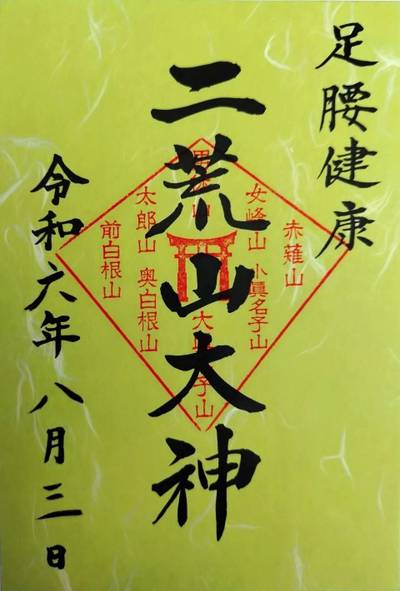 足腰健康
二荒山大神
赤薙山
女峰山
小眞名子山
太郎山
奥白根山
前白根山
令和六年八月三日